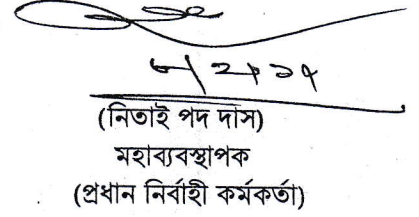 (নিতাই পদ দাস)
মহাব্যবস্থাপক
(প্রধান নির্বাহী কর্মকর্তা)